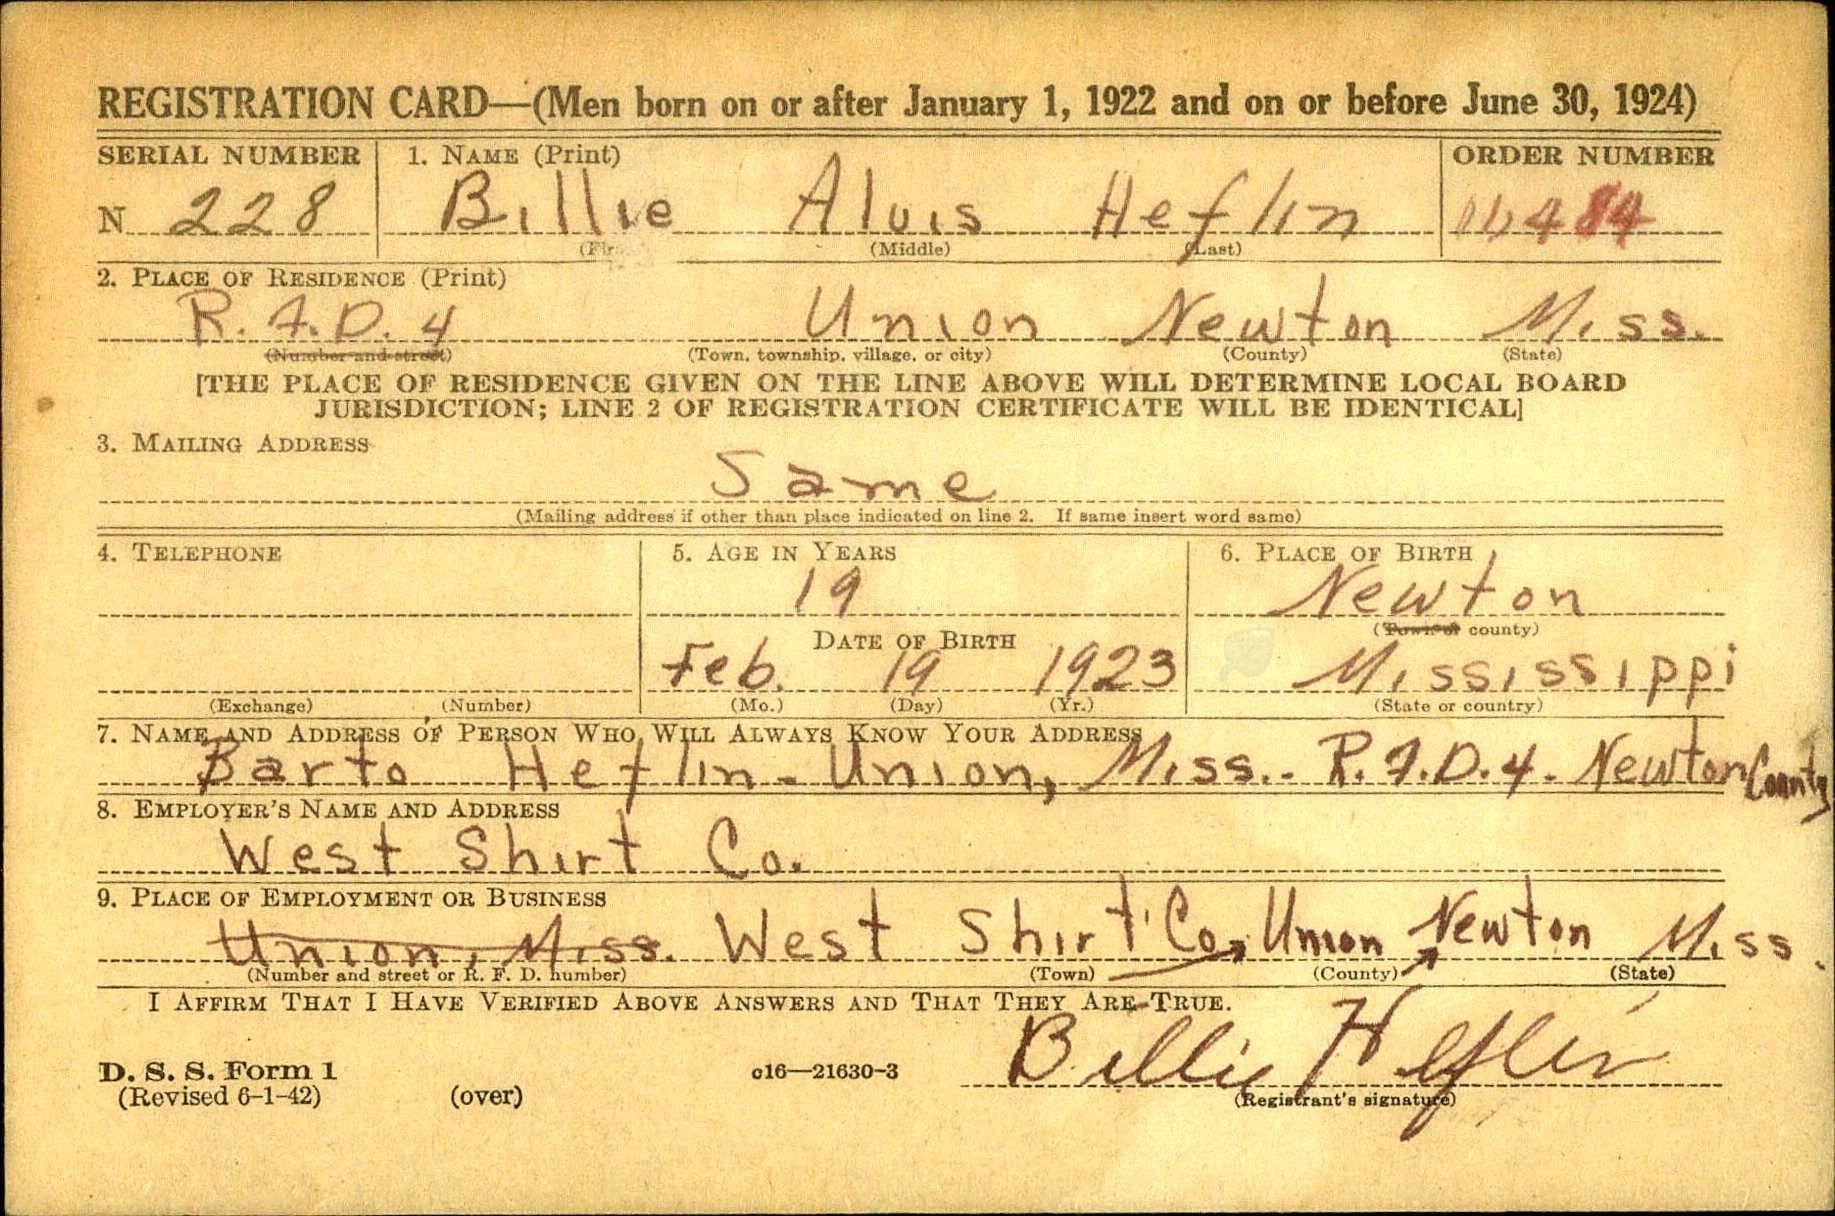 REGISTRATION CARD—(Men born on or after January 1, 1922 and on or before June 30, 1924)
SERIAL NUMBER 1. NAME (Print) ORDER NUMBER
N 228 Billie Alvis Heflin 484
(Middle) (Last)
2. PLACE OF RESIDENCE (Print)
R. F. D. 4 Union Newton Miss.
(Number and street) (Town, township, village, or city) (County) (State)
[THE PLACE OF RESIDENCE GIVEN ON THE LINE ABOVE WILL DETERMINE LOCAL BOARD
JURISDICTION; LINE 2 OF REGISTRATION CERTIFICATE WILL BE IDENTICAL]
3. MAILING ADDRESS
Same
(Mailing address if other than place indicated on line 2. If same insert word same)
4. TELEPHONE 5. AGE IN YEARS 6. PLACE OF BIRTH
19 Newton
(Town or county)
DATE OF BIRTH
Feb. 19 1923 Mississippi
(Exchange) (Number) (Mo.) (Day) (Yr.) (State or country)
7. NAME AND ADDRESS OF PERSON WHO WILL ALWAYS KNOW YOUR ADDRESS
Barto Heflin - Union, Miss. - R. F. D. 4. Newton County
8. EMPLOYER'S NAME AND ADDRESS
West Shirt Co.
9. PLACE OF EMPLOYMENT OR BUSINESS
Union, Miss. West Shirt Co., Union Newton Miss.
(Number and street or R. F. D. number) (Town) (County) (State)
I AFFIRM THAT I HAVE VERIFIED ABOVE ANSWERS AND THAT THEY ARE TRUE.
Billie Heflin
D. S. S. Form 1 c16—21630-3
(Revised 6-1-42) (over) (Registrant's signature)